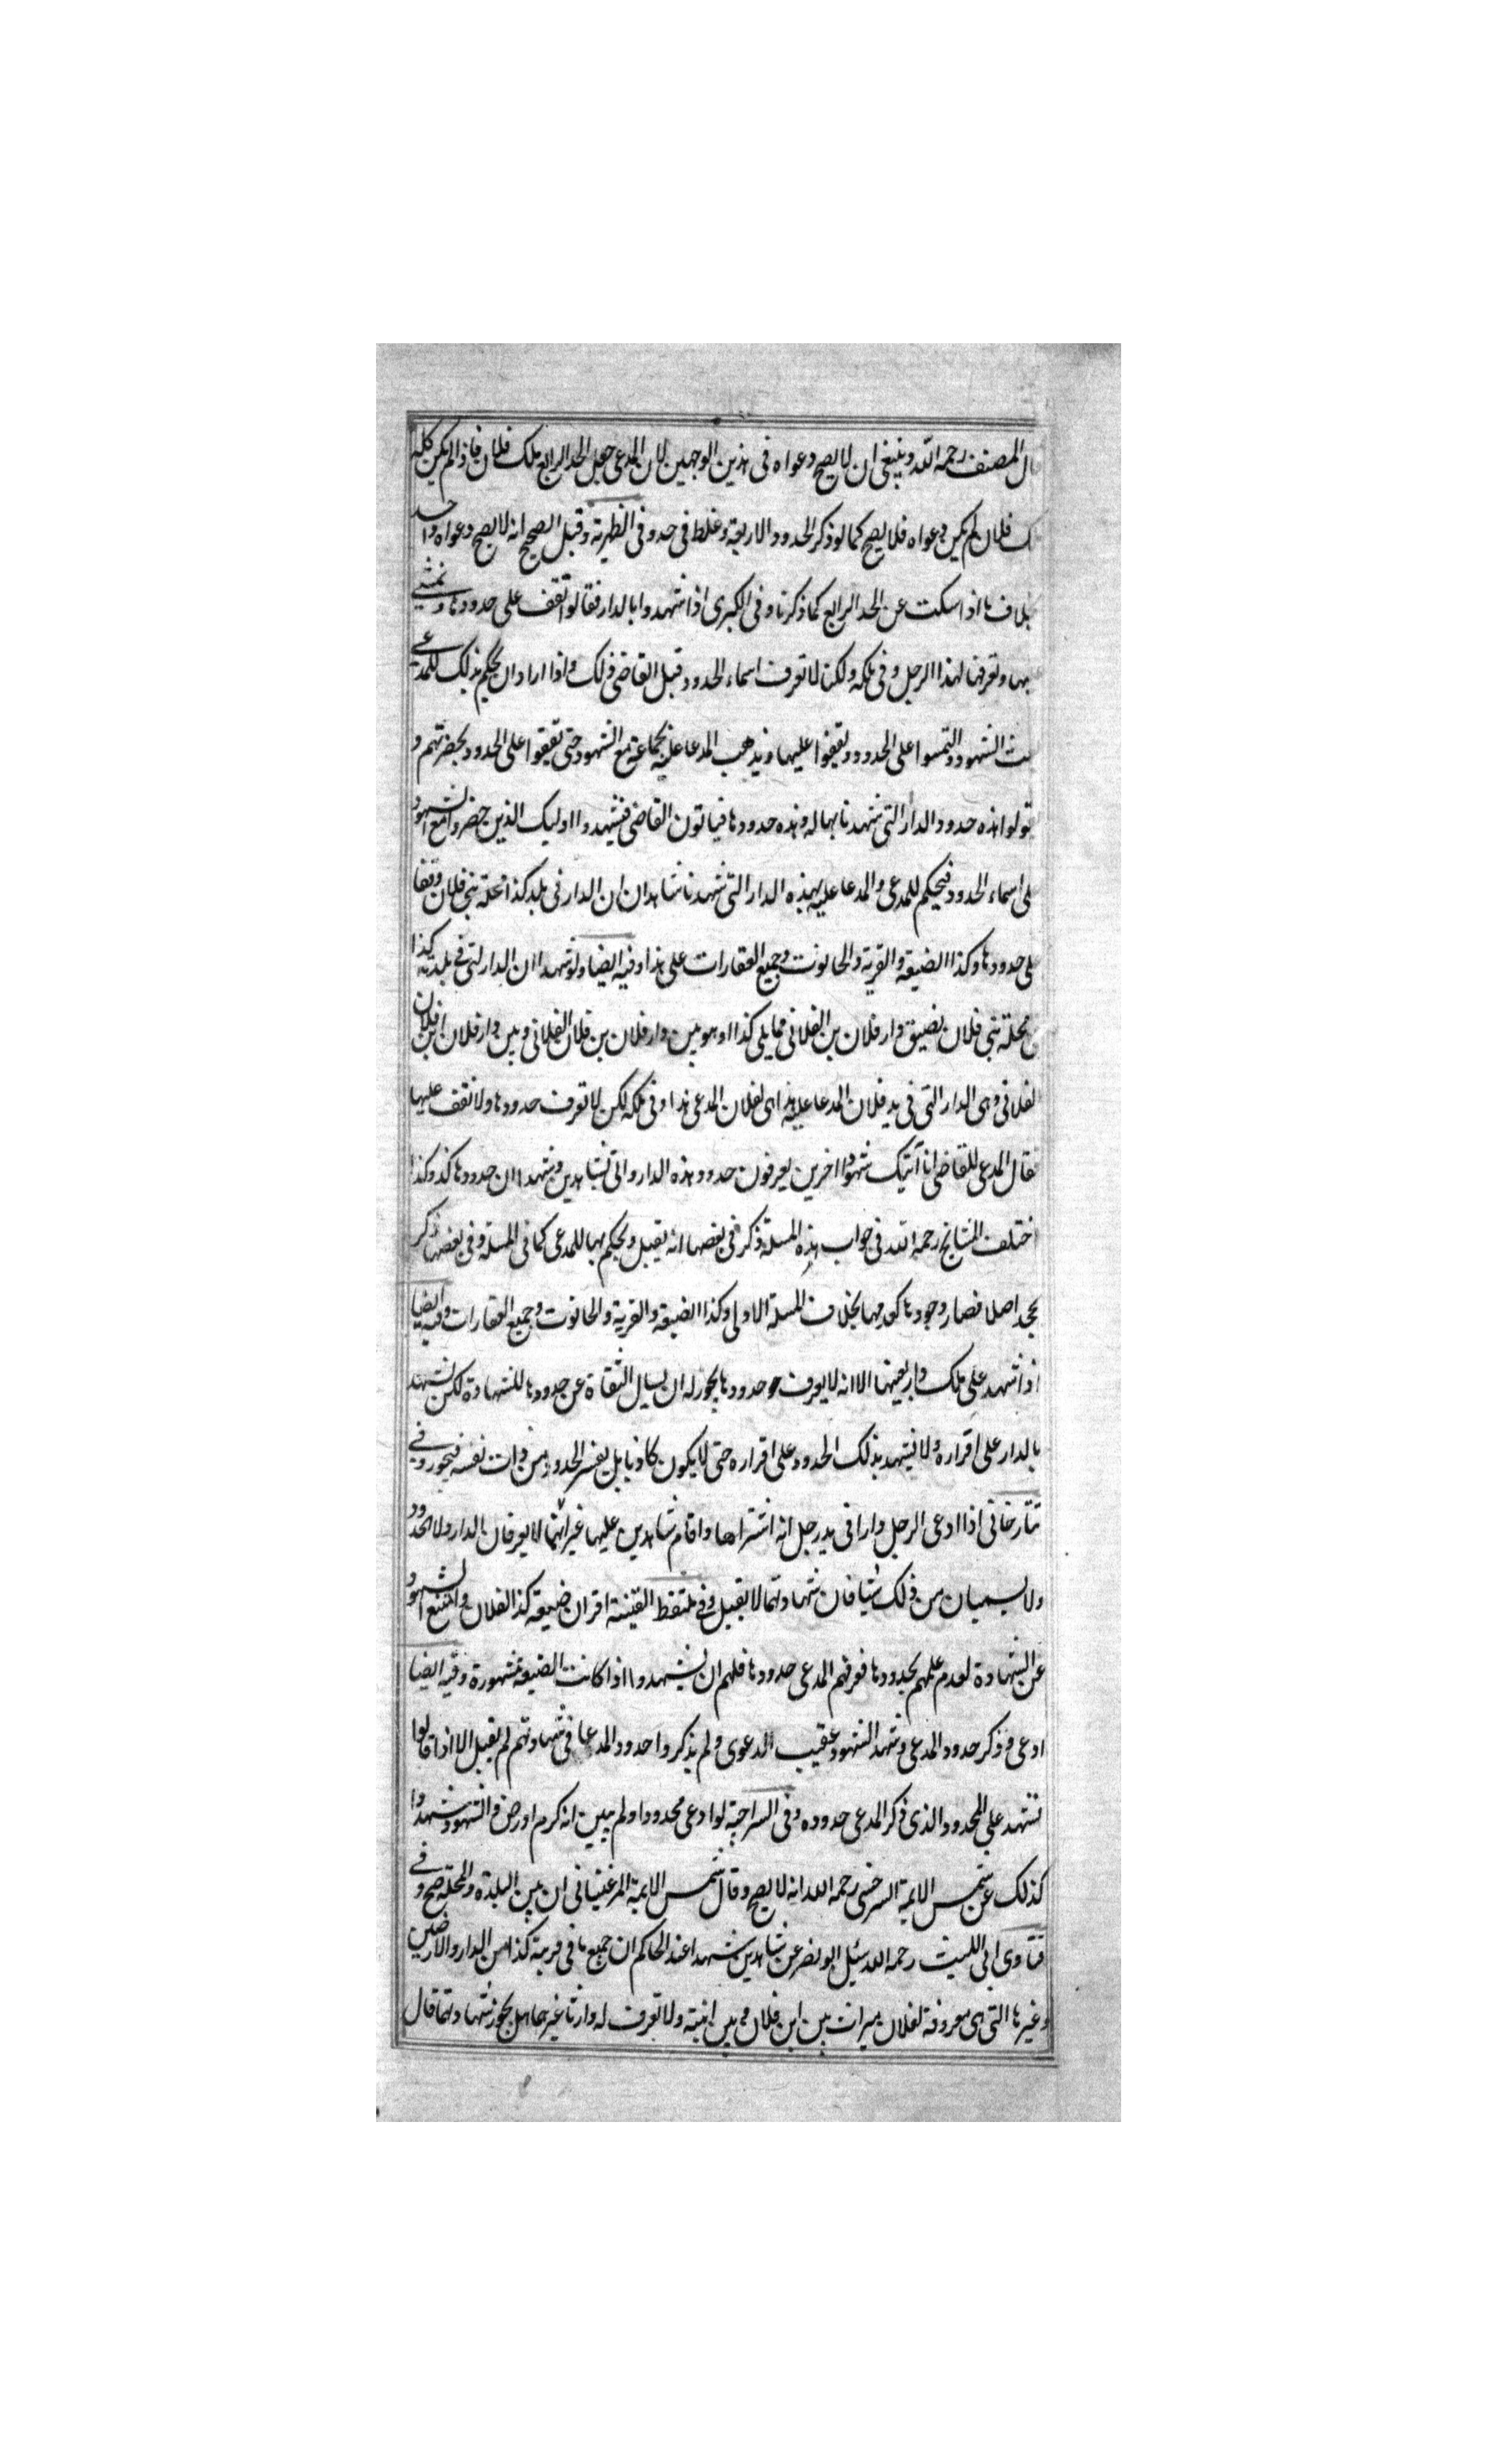 قال المصنف رحمه الله وينبغي ان لا يصح دعواه فى هذين الوجهين لان المدعى جعل الحد الرابع ملك فلان فاذا لم يكن كله
ملك فلان لم يكن دعواه فلا يصح كما لو ذكر الحدود الاربعة وغلط فى حد وفى الظهيرية وقيل الصحيح انه لا يصح دعواه
بخلاف ما اذا سكت عن الحد الرابع كما ذكرنا وفى الكبرى اذا شهدوا بالدار فقالوا نقف على حدودها ونمشى
بها ونعرفها لهذا الرجل وفى ملكه ولكن لا نعرف اسماء الحدود قبل القاضى ذلك واذا اراد ان يحكم بذلك للمدعى
الشهود والتمسوا على الحدود ويقفوا عليها ويذهب المدعا عليه بجماعة مع الشهود حتى يقفوا على الحدود بحضرتهم و
يقولوا هذه حدود الدار التى شهدنا بها له وهذه حدودها فياتون القاضى فيشهدوا اوليك الذين حضروا مع الشهود
على اسماء الحدود فيحكم للمدعى والمدعا عليه بهذه الدار التى شهدنا شاهدان ان الدار فى بلد كذا محلة بنى فلان وقفا
على حدودها وكذا الضيعة والقرية والحانوت وجميع العقارات على هذا وفيه ايضا ولو شهدا ان الدار التى فى بلدة كذا
فى محلة بنى فلان بضيق دار فلان بن الفلانى مما يلى كذا او هو بين دار فلان بن فلان الفلانى وبين دار فلان ابن فلان
الفلانى وهى الدار التى فى يد فلان المدعا عليه هذا هى لفلان المدعى هذا وفى ملكه لكن لا نعرف حدودها ولا نقف عليها
فقال المدعى للقاضى انا آتيك شهودا اخرين يعرفون حدود هذه الدار واتى بشاهدين وشهدا ان حدودها كذا وكذا
اختلف المشايخ رحمه الله فى جواب هذه المسئلة ذكر فى بعضها انه يقبل ويحكم بها للمدعى كما فى المسئلة وفى بعضها ذكر
يجد اصلا فصار وجودها كعدمها بخلاف المسئلة الاولى وكذا الضيعة والقرية والحانوت وجميع العقارات وفيه ايضا
اذا شهد على ملك دار بعينها الا انه لا يعرف حدودها يجوز له ان يسال الثقاة عن حدودها للشهادة لكن يشهد
بالدار على اقراره ولا يشهد بذلك الحدود على اقراره حتى لا يكون كاذبا بل يفسر الحدود من ذات نفسه فيجوز وفى
تتارخانى اذا ادعى الرجل دارا فى يد رجل انه اشتراها واقام شاهدين عليها غير انهما لا يعرفان الدار ولا الحدود
ولا يسميان من ذلك شيا فان شهادتهما لا يقبل وفى ملتقط القنية اقر ان ضيعة كذا لفلان وامتنع الشهود
عن الشهادة لعدم علمهم بحدودها فعرفهم المدعى حدودها فلهم ان يشهدوا اذا كانت الضيعة مشهورة وفيه ايضا
ادعى وذكر حدود المدعى وشهد الشهود عقيب الدعوى ولم يذكروا حدود المدعا فى شهادتهم لم يقبل الا اذا قالوا
نشهد على المحدود الذى ذكر المدعى حدوده وفى السراجية لو ادعى محدودا ولم يبين انه كرم او ارض والشهود شهدوا
كذلك عن شمس الايمة السرخسى رحمه الله انه لا يصح وقال شمس الايمة المرغينانى ان بين البلدة والمحلة صح وفى
فتاوى ابى الليث رحمه الله سئل ابو نصر عن شاهدين شهدا عند الحاكم ان جميع ما فى قرية كذا من الدار والارضين
وغيرها التى هى معروفة لفلان ميراث بين ابن فلان وبين ابنته ولا نعرف له وارثا غيرهما هل يجوز شهادتهما قال